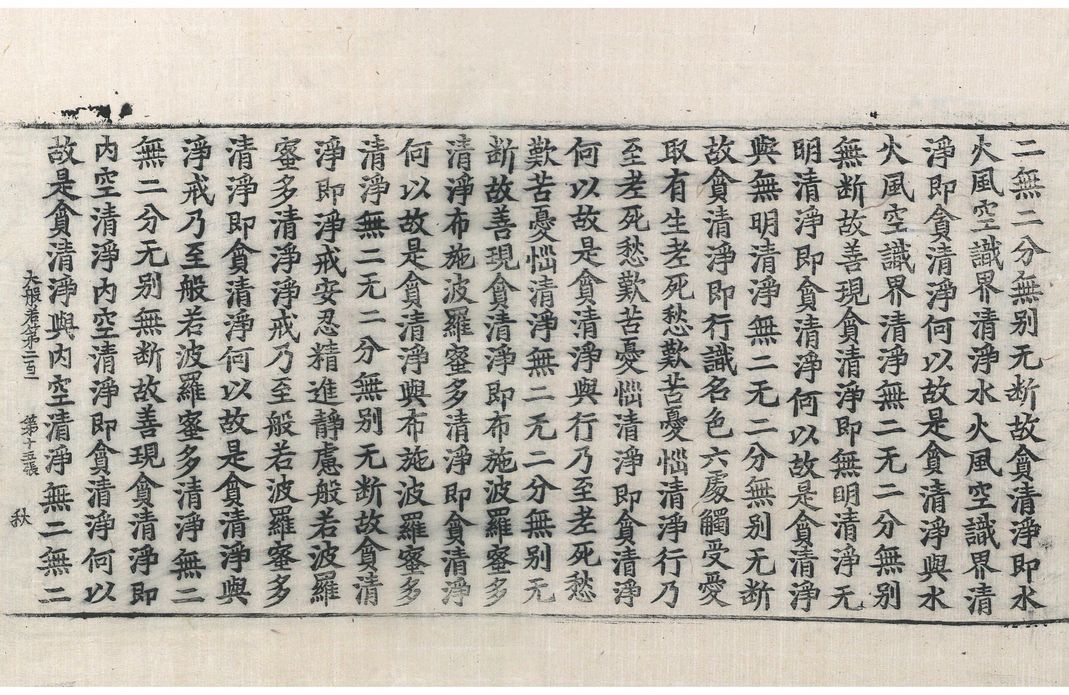 二無二分無別无断故貪清淨即水
火風空識界清淨水火風空識界清
淨即貪清淨何以故是貪清淨與水
火風空識界清淨無二无二分無別
無断故善現貪清淨即無明清淨无
明清淨即貪清淨何以故是貪清淨
與無明清淨無二无二分無別无断
故貪清淨即行識名色六處觸受愛
取有生老死愁歎苦憂惱清淨行乃
至老死愁歎苦憂惱清淨即貪清淨
何以故是貪清淨與行乃至老死愁
歎苦憂惱清淨無二无二分無別无
断故善現貪清淨即布施波羅蜜多
清淨布施波羅蜜多清淨即貪清淨
何以故是貪清淨與布施波羅蜜多
清淨無二无二分無別无断故貪清
淨即淨戒安忍精進靜慮般若波羅
蜜多清淨淨戒乃至般若波羅蜜多
清淨即貪清淨何以故是貪清淨與
淨戒乃至般若波羅蜜多清淨無二
無二分无別無断故善現貪清淨即
內空清淨內空清淨即貪清淨何以
故是貪清淨與內空清淨無二無二
大般若第二百一 第十五張 秋